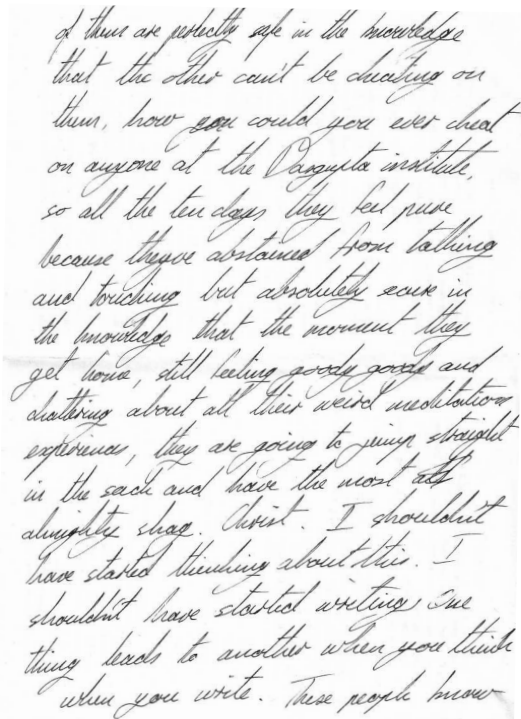 of them are perfectly safe in the knowledge
that the other can't be cheating on
them, how you could you ever cheat
on anyone at the Dasgupta institute,
so all the ten days they feel pure
because theyve abstained from talking
and touching but absolutely secure in
the knowledge that the moment they
get home, still feeling goody goody and
chattering about all their weird meditations
experiences, they are going to jump straight
in the sack and have the most
almighty shag. Christ. I shouldn't
have started thinking about this. I
shouldn't have started writing. One
thing leads to another when you think
when you write. These people know